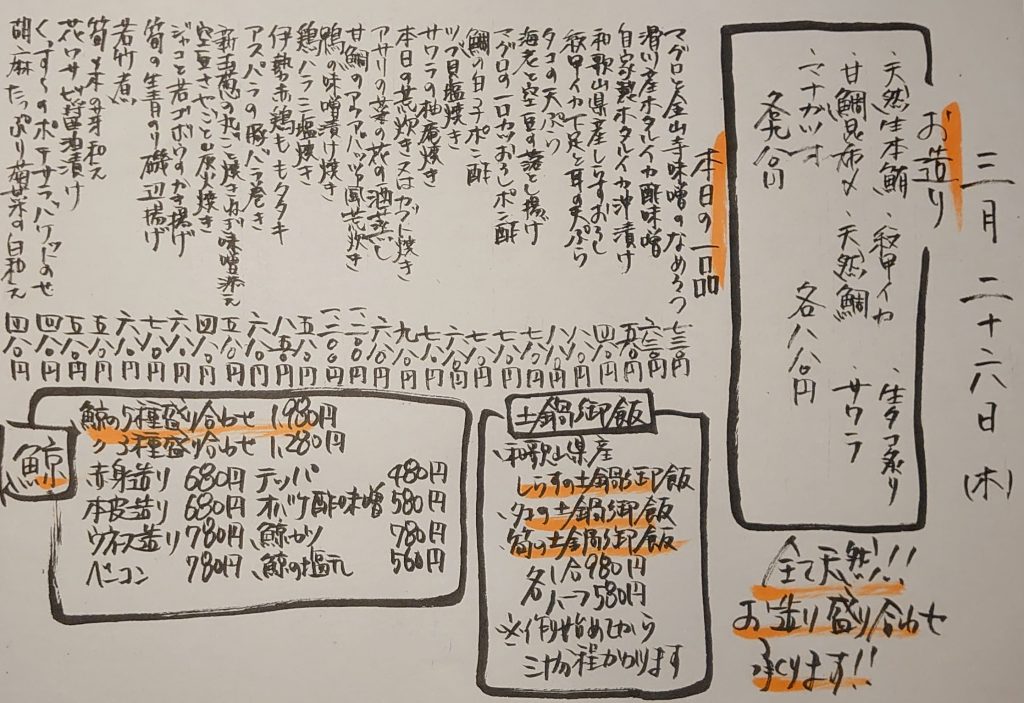 三月二十六日(木)
お造り
、天然生本鮪 、紋甲イカ 、生タコ湯引り
甘鯛昆布〆 、天然鯛 、サワラ
、マナガツオ
各八八〇円
各九八〇円
全て天然!!!
お造り盛り合わせ
承ります!!
本日の一品
マグロと金山寺味噌のなめろう 七三〇円
滑川産ホタルイカ酢味噌 六三〇円
自家製ホタルイカ沖漬け 五八〇円
和歌山県産しらすおろし 四八〇円
紋甲イカ下足と耳の天ぷら 八八〇円
タコの天ぷら 八八〇円
海老と空豆の落とし揚げ 七八〇円
マグロの一口カツおろしポン酢 七八〇円
鯛の白子ポン酢 七八〇円
ツブ貝塩焼き 六八〇円
サワラの柚庵焼き 七八〇円
本日の荒炊き又はカブト焼き 九八〇円
アサリの菜の花の酒蒸し 六八〇円
甘鯛のアクアパッツァ風荒炊き 一二〇〇円
鴨の味噌漬け焼き 一二〇〇円
鶏ハラミ塩焼き 五八〇円
伊勢赤鶏ももタタキ 八五〇円
アスパラの豚バラ巻き 六八〇円
新玉葱の丸ごと焼きねぎ味噌添え 五八〇円
空豆さやごと炭火焼き 四八〇円
ジャコと若ゴボウのかき揚げ 六八〇円
筍の生青のり磯辺揚げ 七八〇円
若竹煮 六八〇円
筍木の芽和え 五八〇円
花ワサビ醤油漬け 五八〇円
くんせいのポテサラバゲットのせ 四八〇円
胡麻たっぷり菊菜の白和え 四八〇円
土鍋御飯
、和歌山県産
しらすの土鍋御飯
、クエの土鍋御飯
、筍の土鍋御飯
各一合980円
ハーフ580円
※作り始めてから
三十分程かかります
鯨
鯨の5種盛り合わせ 1,980円
〃3種盛り合わせ 1,280円
赤身造り 680円 テッパ 480円
本皮造り 680円 オバケ酢味噌 580円
ウネス造り 780円 、鯨カツ 780円
ベーコン 780円 、鯨の塩ユデ 560円